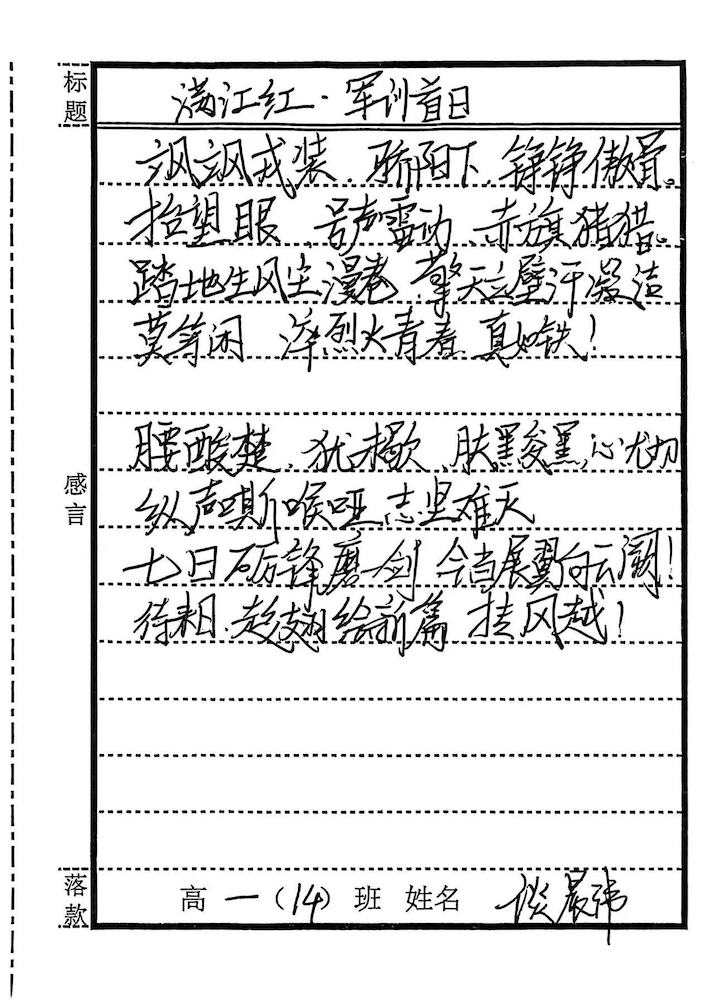 标题
满江红·军训首日
飒飒戎装，骄阳下，铮铮傲骨。
抬望眼，号声雷动，赤旗猎猎。
踏地生风尘漫卷，擎天立壁汗凝洁
莫等闲 淬烈火青春 真如铁！
感言
腰酸楚，犹未歇，肤黑发黑，心尤切
纵声嘶喉哑，志坚难灭
七日砺锋磨一剑 今当展翼向云阙！
待来日，彭翅绘新篇 挂风越！
落款
高一（14）班 姓名 谈晨祎